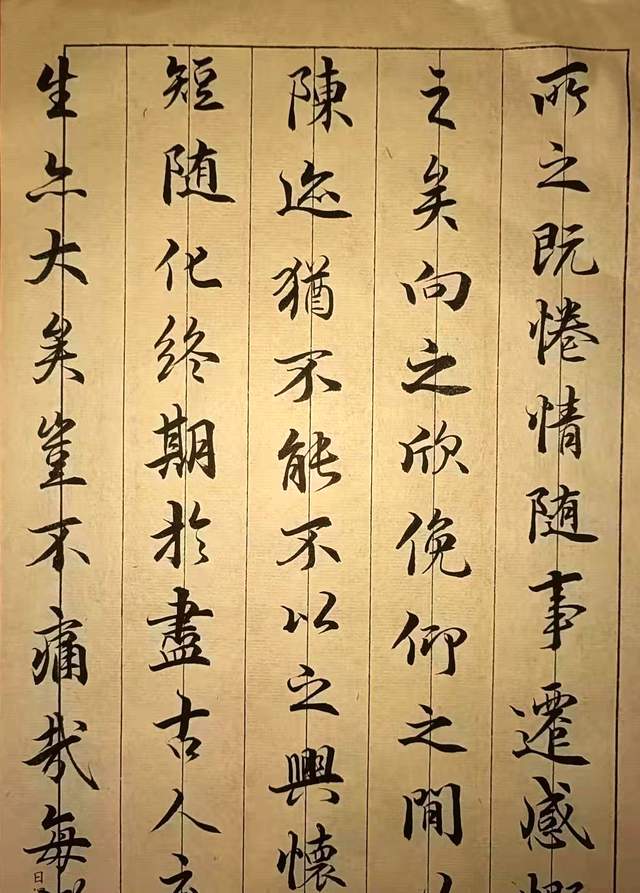 所之既惓情随事遷感
之矣向之欣俛仰之間
陳迹猶不能不以之興懷
短随化終期於盡古人
生亦大矣豈不痛哉每